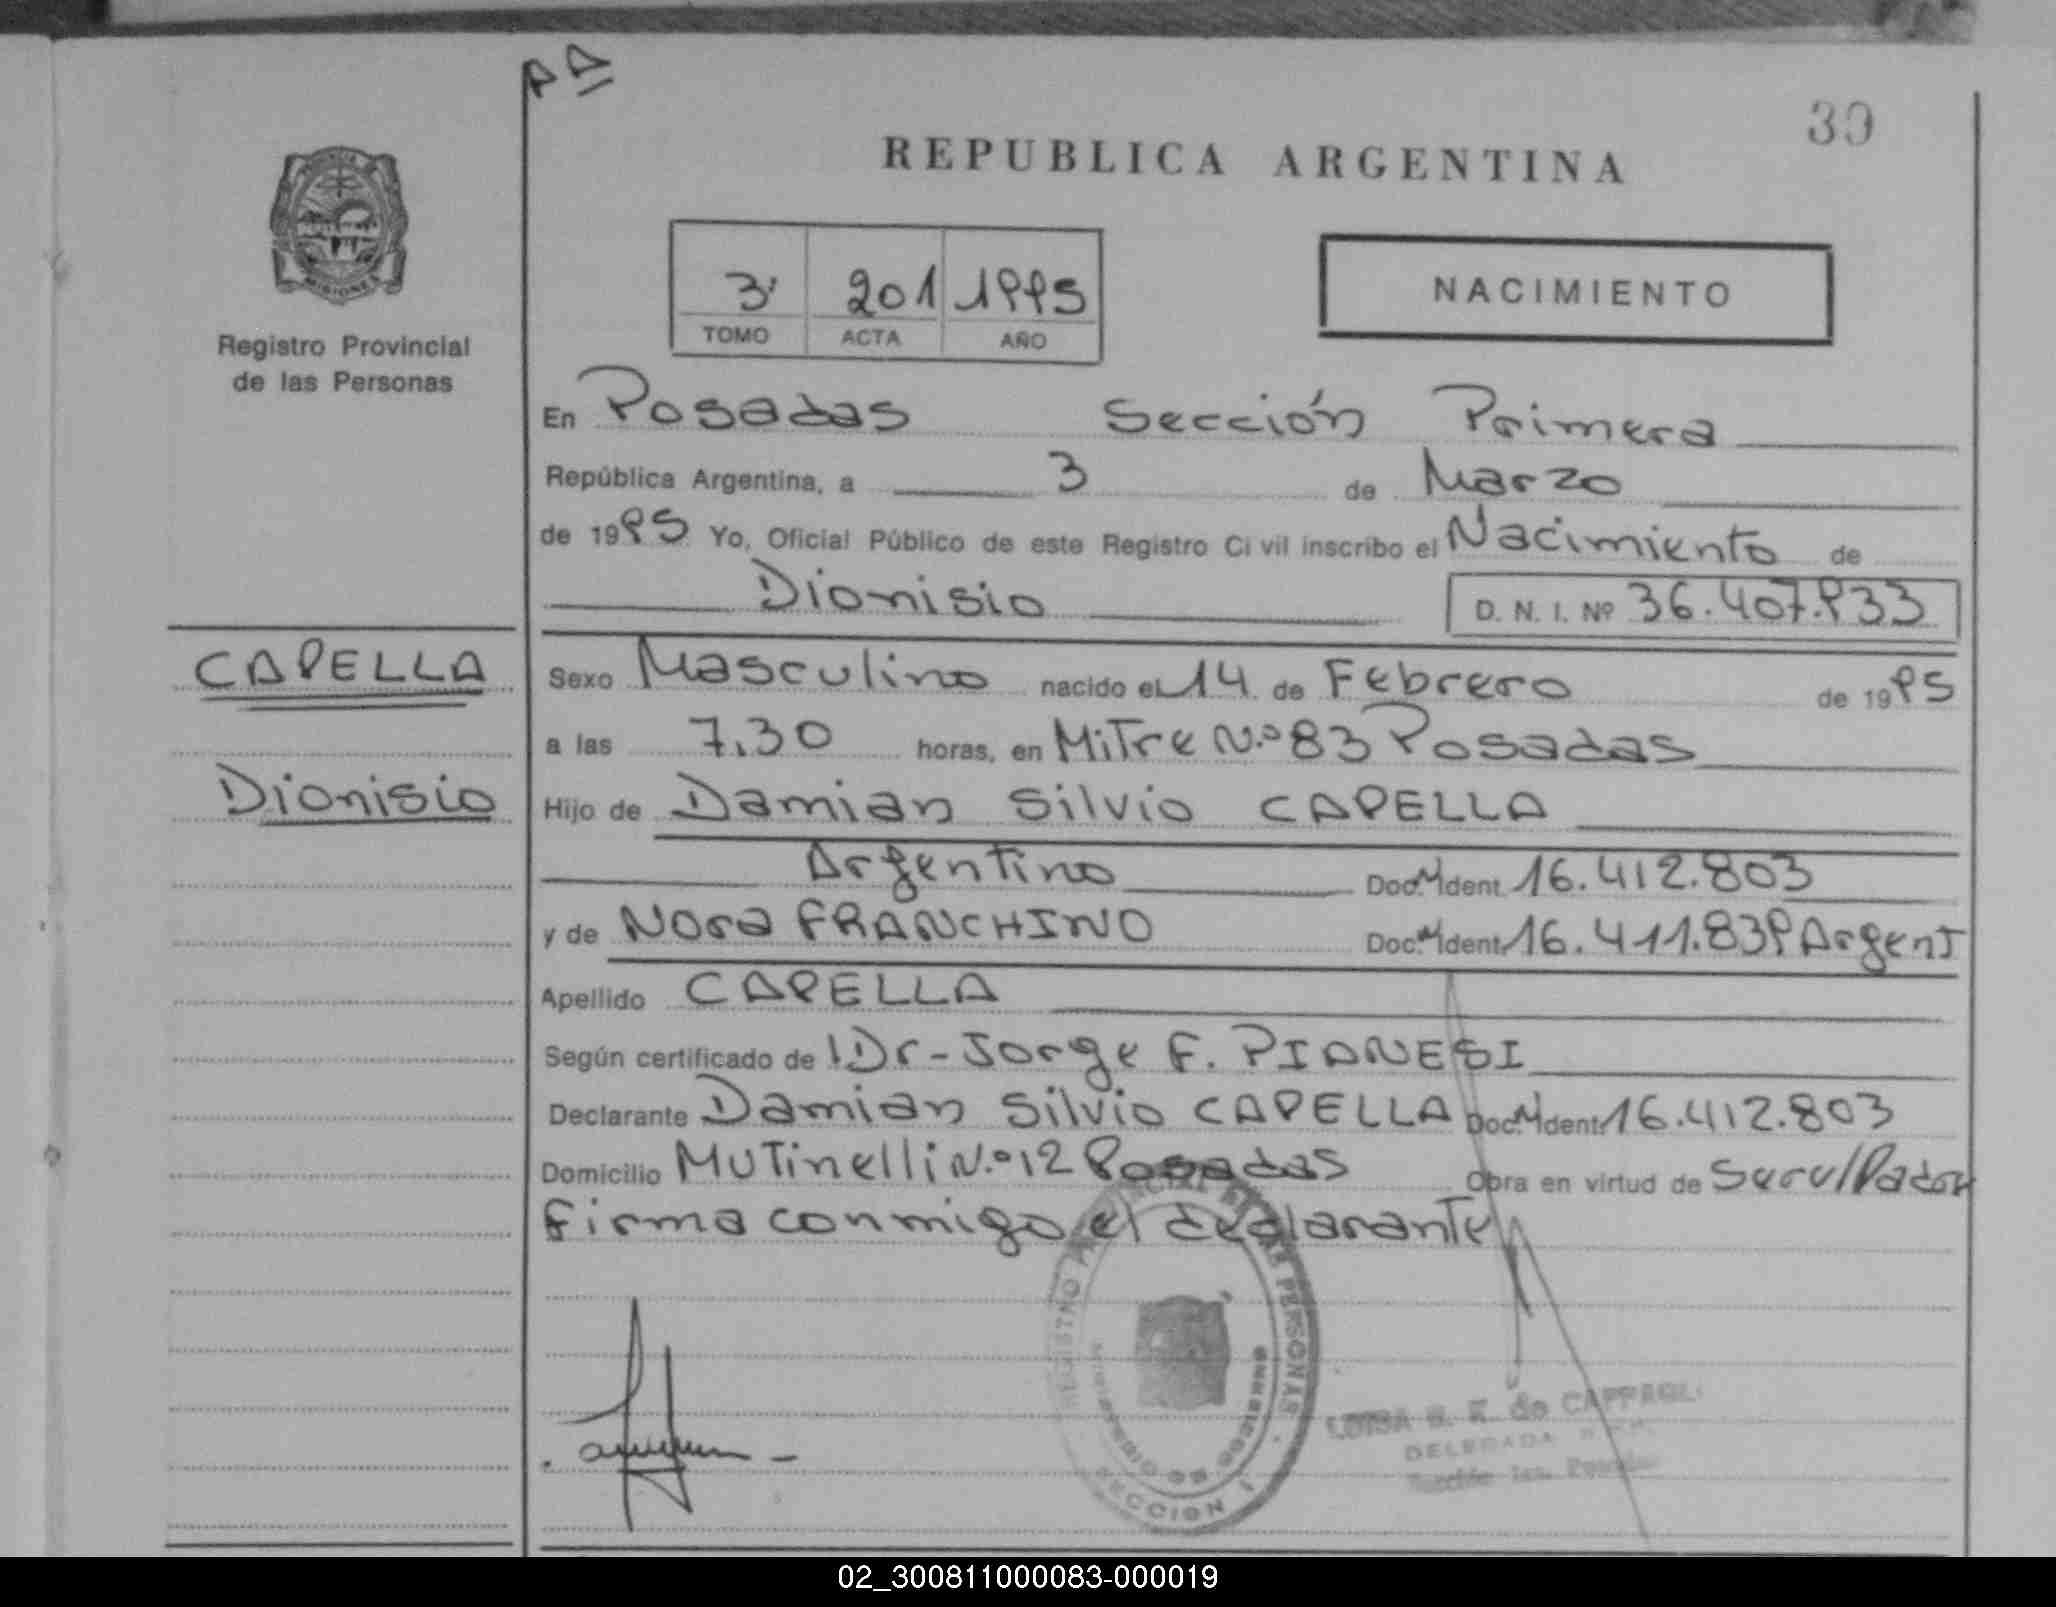 AA
30
REPUBLICA ARGENTINA
MISIONES
Registro Provincial
de las Personas
3' 201 1995
TOMO ACTA AÑO
NACIMIENTO
En Posadas Sección Primera
República Argentina, a 3 de Marzo
de 1995 Yo, Oficial Público de este Registro Civil inscribo el Nacimiento de
Dionisio D. N. I. Nº 36.407.933
CAPELLA
Sexo Masculino nacido el 14 de Febrero de 1995
a las 7.30 horas, en Mitre N.º 83 Posadas
Dionisio
Hijo de Damian Silvio CAPELLA
Argentino Doc. Ident. 16.412.803
y de Nora FRANCHINO Doc. Ident. 16.411.839 Argent
Apellido CAPELLA
Según certificado de Dr- Jorge F. PIANESI
Declarante Damian Silvio CAPELLA Doc. Ident. 16.412.803
Domicilio Mutinelli N.º 12 Posadas Obra en virtud de
Firma conmigo el declarante
REGISTRO PROVINCIAL DE LAS PERSONAS
MINISTERIO DE GOBIERNO
SECCION 1
DELEGADA
02_300811000083-000019